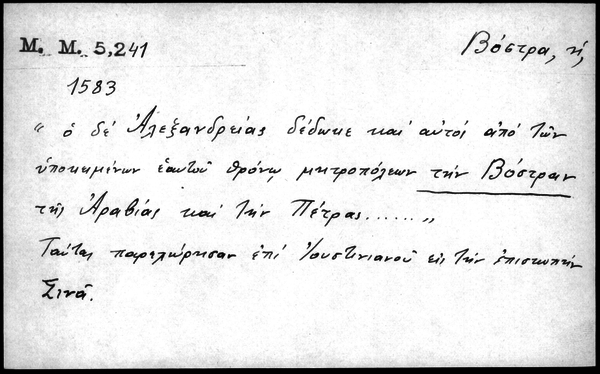 M. M. 5,241
Βόστρα, ἡ,
1583
„ ὁ δέ Ἀλεξανδρείας δέδωκε καί αὐτός ἀπό τῶν
ὑποκειμένων ἑαυτοῦ θρόνῳ μητροπόλεων τήν Βόστραν
τῆς Ἀραβίας καί τήν Πέτρας...... „
Ταύτας παρεχώρησαν ἐπί Ἰουστινιανοῦ εἰς τήν ἐπισκοπήν
Σινᾶ.